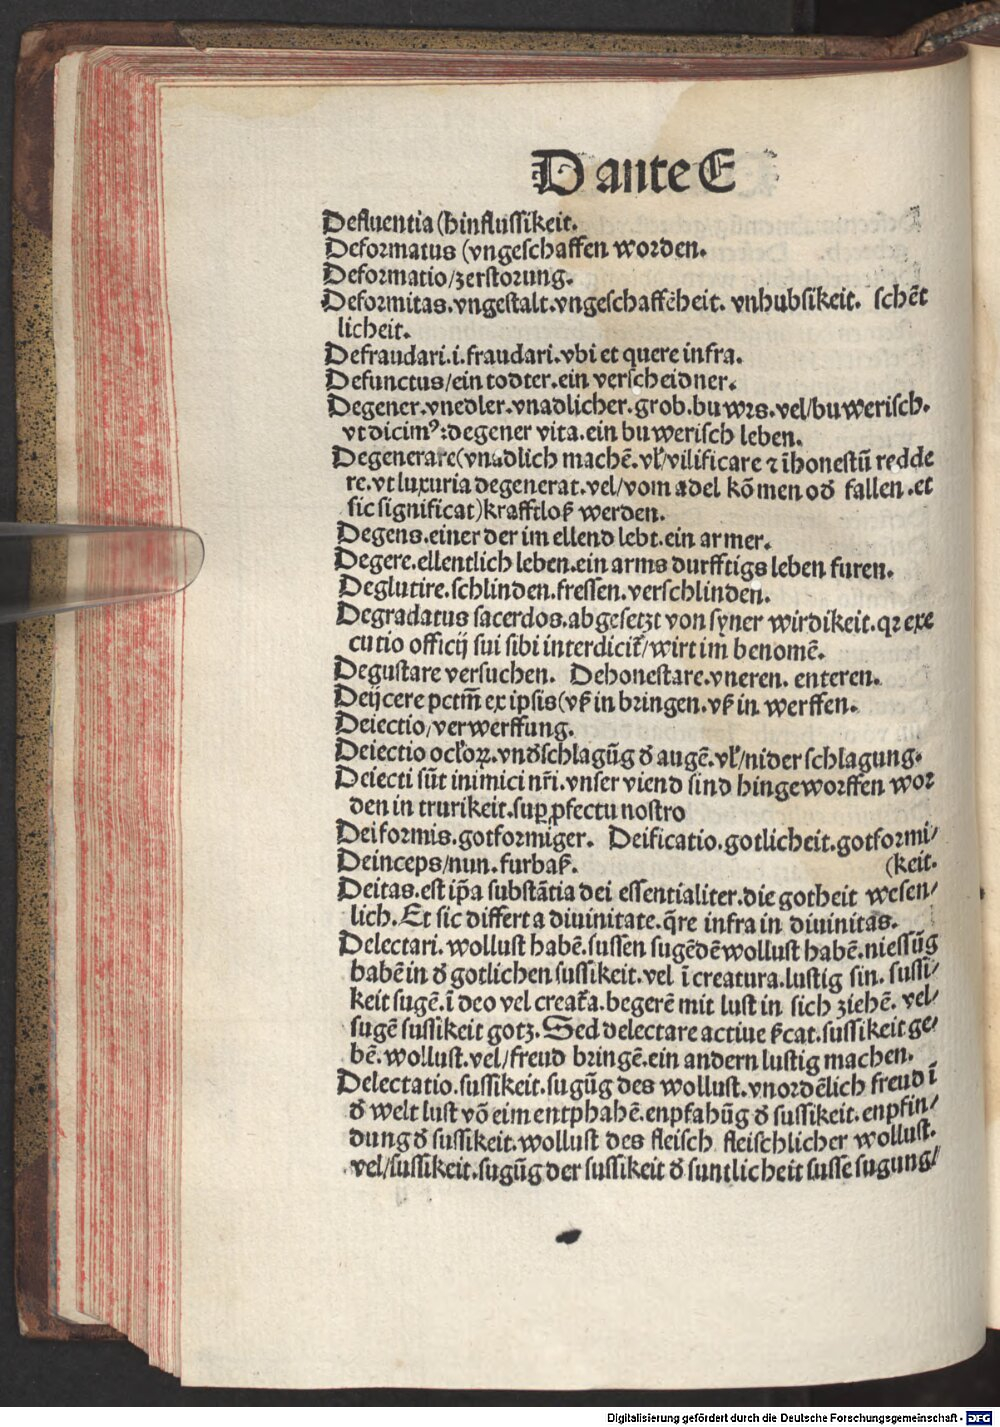 D ante E
Defluentia (hinflussikeit.
Deformatus (vngeschaffen worden.
Deformatio/zerstorung.
Deformitas.vngestalt.vngeschaffēheit. vnhubsikeit. schēt
licheit.
Defraudari.i.fraudari.vbi et quere infra.
Defunctus/ein todter.ein verscheidner.
Degener.vnedler.vnadlicher.grob.buwrs.vel/buwerisch.
vt dicimꝰ:degener vita.ein buwerisch leben.
Degenerare(vnadlich machē.vl̕/vilificare ⁊ īhonestū redde
re.vt luxuria degenerat.vel/vom adel kōmen od̕ fallen.et
sic significat)krafftloß werden.
Degens.einer der im ellend lebt.ein armer.
Degere.ellentlich leben.ein arms durfftigs leben furen.
Deglutire.schlinden.fressen.verschlinden.
Degradatus sacerdos.abgesetzt von syner wirdikeit.qꝛ exe
cutio officij sui sibi interdicit̕/wirt im benomē.
Degustare versuchen. Dehonestare.vneren. enteren.
Deijcere pctm̄ ex ipsis(vß in bringen.vß in werffen.
Deiectio/verwerffung.
Deiectio ocl̕oꝝ.vnd̕schlagūg d̕ augē.vl̕/nider schlagung.
Deiecti sūt inimici nr̄i.vnser viend sind hingeworffen wor
den in trurikeit.suꝑ ꝓfectu nostro
Deiformis.gotformiger. Deificatio.gotlicheit.gotformi/
Deinceps/nun.furbaß. (keit.
Deitas.est ip̄a substātia dei essentialiter.die gotheit wesen/
lich.Et sic differt a diuinitate.q̄re infra in diuinitas.
Delectari.wollust habē.sussen sugēdē wollust habē.niessūg
habē in d̕ gotlichen sussikeit.vel ī creatura.lustig sin. sussi/
keit sugē.ī deo vel creat̕a.begerē mit lust in sich ziehē. vel/
sugē sussikeit gotz.Sed delectare actiue ẜcat.sussikeit ge/
bē.wollust.vel/freud bringē.ein andern lustig machen.
Delectatio.sussikeit.sugūg des wollust.vnordēlich freud ī
d̕ welt lust vō eim entphahē.enpfahūg d̕ sussikeit.enpfin/
dung d̕ sussikeit.wollust des fleisch fleischlicher wollust.
vel/sussikeit.sugūg der sussikeit d̕ suntlicheit susse sugung/
Digitalisierung gefördert durch die Deutsche Forschungsgemeinschaft - DFG